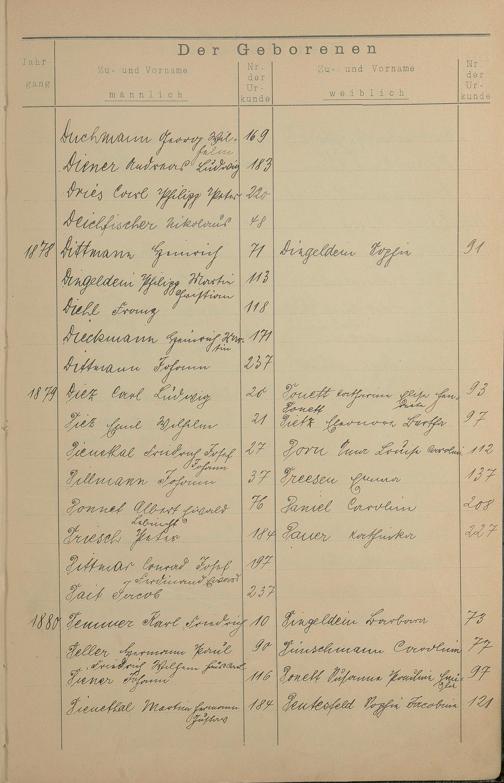 Der Geborenen
Jahrgang
Zu- und Vorname
männlich
Nr. der Urkunde
Zu- und Vorname
weiblich
Nr. der Urkunde
Duchmann Georg Wilhelm 169
Diener Andreas Ludwig 183
Dries Carl Philipp Peter 220
Deichfischer Nikolaus 48
1878 Dittmann Heinrich 71 Dingeldein Sophie 91
Dingeldein Philipp Martin Christian 113
Diehl Franz 118
Dieckmann Heinrich Martin 171
Dittmann Johann 237
1879 Diez Carl Ludwig 20 Donett Katharina Elise 93
Diez Emil Wilhelm 21 Dietz Eleonore Bertha 97
Dienstal Friedrich Josef Johann 27 Dorn Louise Carolin 112
Dillmann Johann 37 Dreesen Emma 137
Donnet Albert Ewald 76 Daniel Carolin 208
Driesch Peter 184 Dauer Katharina 227
Dittmar Conrad Josef Ferdinand 197
Dait Jacob 237
1880 Demmer Karl Friedrich 10 Dingeldein Barbara 73
Deller Hermann Paul 90 Dünschmann Carolin 77
Friedrich Wilhelm
Diener Johann 116 Donett Susanna Pauline 97
Dienethal Martin Hermann Gustav 184 Deutesfeld Sophie Jacobine 121